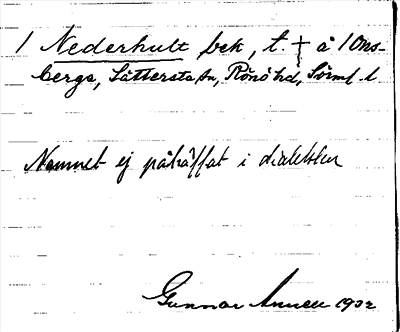 1 Nederhult bek, t. † å 1 Ons-
berga, Sättersta sn, Rönö hd, Sörml l
Namnet ej påträffat i dialekten
Gunnar 1902